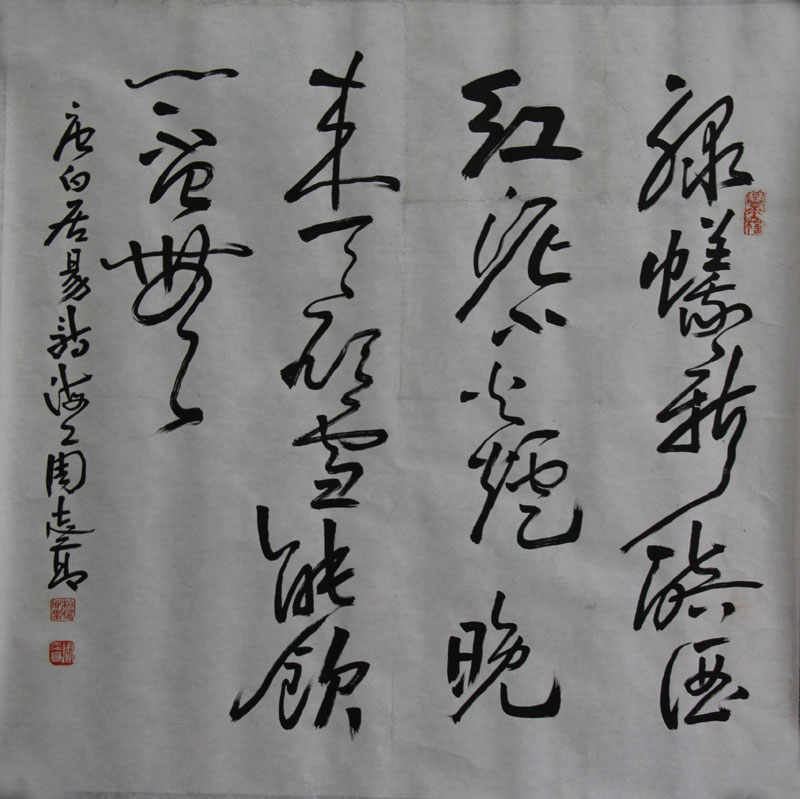 綠蟻新醅酒
红泥小火爐晚
来天欲雪能飲
一盃無
唐白居易詩海上周志高